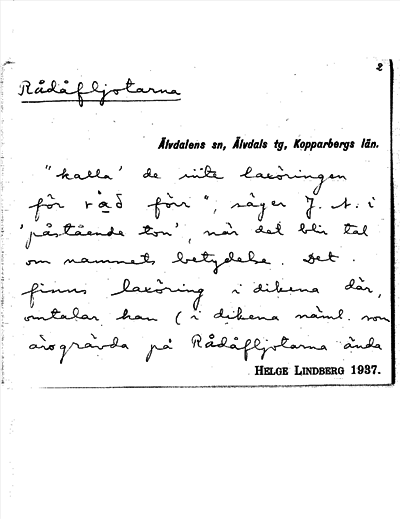 2
Rådåfljotarna
Älvdalens sn, Älvdals tg, Kopparbergs län.
"kalla' de inte laxöringen
för råd förr", säger J. A. i
'påstående ton', när det blir tal
om namnets betydelse. Det
finns laxöring i dikena där,
omtalar han (i dikena näml. som
äro grävda på Rådåfljotarna ända
HELGE LINDBERG 1937.